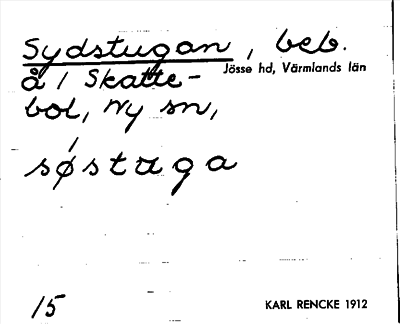 Sydstugan, beb.
Jösse hd, Värmlands län
å 1 Skatte-
bol, Ny sn,
søstuga
15
KARL RENCKE 1912